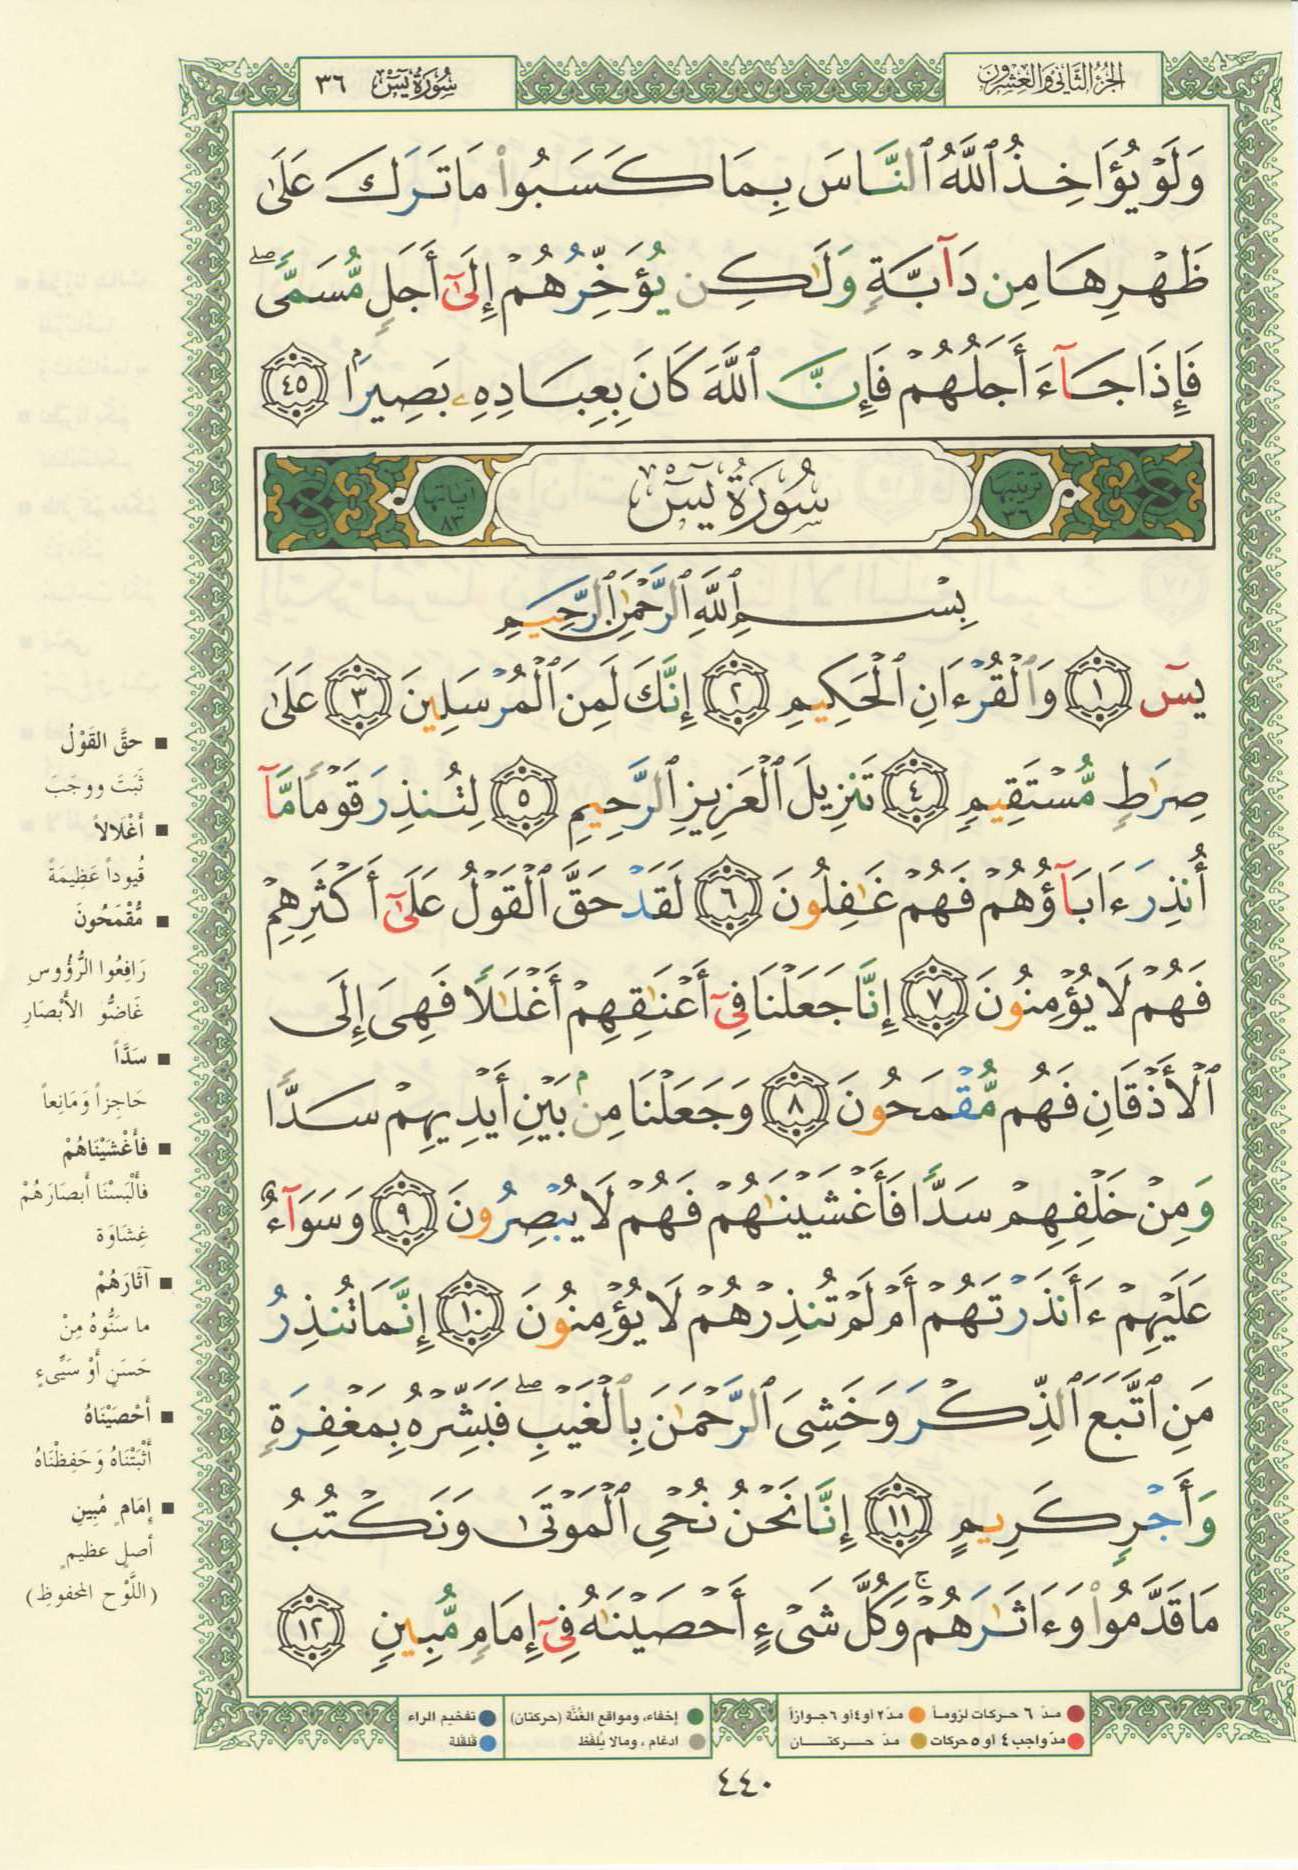 الجزء الثاني والعشرون
سُورَةُ يسٓ ٣٦
وَلَوْ يُؤَاخِذُ ٱللَّهُ ٱلنَّاسَ بِمَا كَسَبُوا۟ مَا تَرَكَ عَلَىٰ
ظَهْرِهَا مِن دَآبَّةٍ وَلَٰكِن يُؤَخِّرُهُمْ إِلَىٰٓ أَجَلٍ مُّسَمًّى ۖ
فَإِذَا جَآءَ أَجَلُهُمْ فَإِنَّ ٱللَّهَ كَانَ بِعِبَادِهِۦ بَصِيرًۢا ٤٥
ترتيبها ٣٦ سُورَةُ يسٓ آياتها ٨٣
بِسْمِ ٱللَّهِ ٱلرَّحْمَٰنِ ٱلرَّحِيمِ
يسٓ ١ وَٱلْقُرْءَانِ ٱلْحَكِيمِ ٢ إِنَّكَ لَمِنَ ٱلْمُرْسَلِينَ ٣ عَلَىٰ
صِرَٰطٍ مُّسْتَقِيمٍ ٤ تَنزِيلَ ٱلْعَزِيزِ ٱلرَّحِيمِ ٥ لِتُنذِرَ قَوْمًا مَّآ
أُنذِرَ ءَابَآؤُهُمْ فَهُمْ غَٰفِلُونَ ٦ لَقَدْ حَقَّ ٱلْقَوْلُ عَلَىٰٓ أَكْثَرِهِمْ
فَهُمْ لَا يُؤْمِنُونَ ٧ إِنَّا جَعَلْنَا فِىٓ أَعْنَٰقِهِمْ أَغْلَٰلًا فَهِىَ إِلَى
ٱلْأَذْقَانِ فَهُم مُّقْمَحُونَ ٨ وَجَعَلْنَا مِنۢ بَيْنِ أَيْدِيهِمْ سَدًّا
وَمِنْ خَلْفِهِمْ سَدًّا فَأَغْشَيْنَٰهُمْ فَهُمْ لَا يُبْصِرُونَ ٩ وَسَوَآءٌ
عَلَيْهِمْ ءَأَنذَرْتَهُمْ أَمْ لَمْ تُنذِرْهُمْ لَا يُؤْمِنُونَ ١٠ إِنَّمَا تُنذِرُ
مَنِ ٱتَّبَعَ ٱلذِّكْرَ وَخَشِىَ ٱلرَّحْمَٰنَ بِٱلْغَيْبِ ۖ فَبَشِّرْهُ بِمَغْفِرَةٍ
وَأَجْرٍ كَرِيمٍ ١١ إِنَّا نَحْنُ نُحْىِ ٱلْمَوْتَىٰ وَنَكْتُبُ
مَا قَدَّمُوا۟ وَءَاثَٰرَهُمْ ۚ وَكُلَّ شَىْءٍ أَحْصَيْنَٰهُ فِىٓ إِمَامٍ مُّبِينٍ ١٢
■ حقَّ القَوْلُ
ثَبَتَ ووجَبَ
■ أغْلالاً
قُيوداً عَظِيمَةً
■ مُّقْمَحُونَ
رَافِعُوا الرُّؤُوسِ
غَاضُّو الأَبْصَارِ
■ سَدَّاً
حَاجِزاً وَمَانِعاً
■ فأَغْشَيْنَاهُمْ
فأَلْبَسْنَا أَبصَارَهُمْ
غِشَاوَة
■ آثَارَهُمْ
ما سَنُّوهُ مِنْ
حَسَنٍ أَوْ سَيِّىءٍ
■ أحْصَيْنَاهُ
أثْبَتْنَاهُ وَحَفِظْنَاهُ
■ إِمَامٍ مُبِينٍ
أصلٍ عظيمٍ
(اللَّوْحِ المحفوظِ)
مـدّ ٦ حركات لزوماً مدّ ٢ او ٤ او ٦ جوازاً
مدّ واجب ٤ او ٥ حركات مدّ حركتان
إخفاء، ومواقع الغُنَّة (حركتان) تفخيم الراء
ادغام ، ومالا يُلفَظ قلقلة
٤٤٠